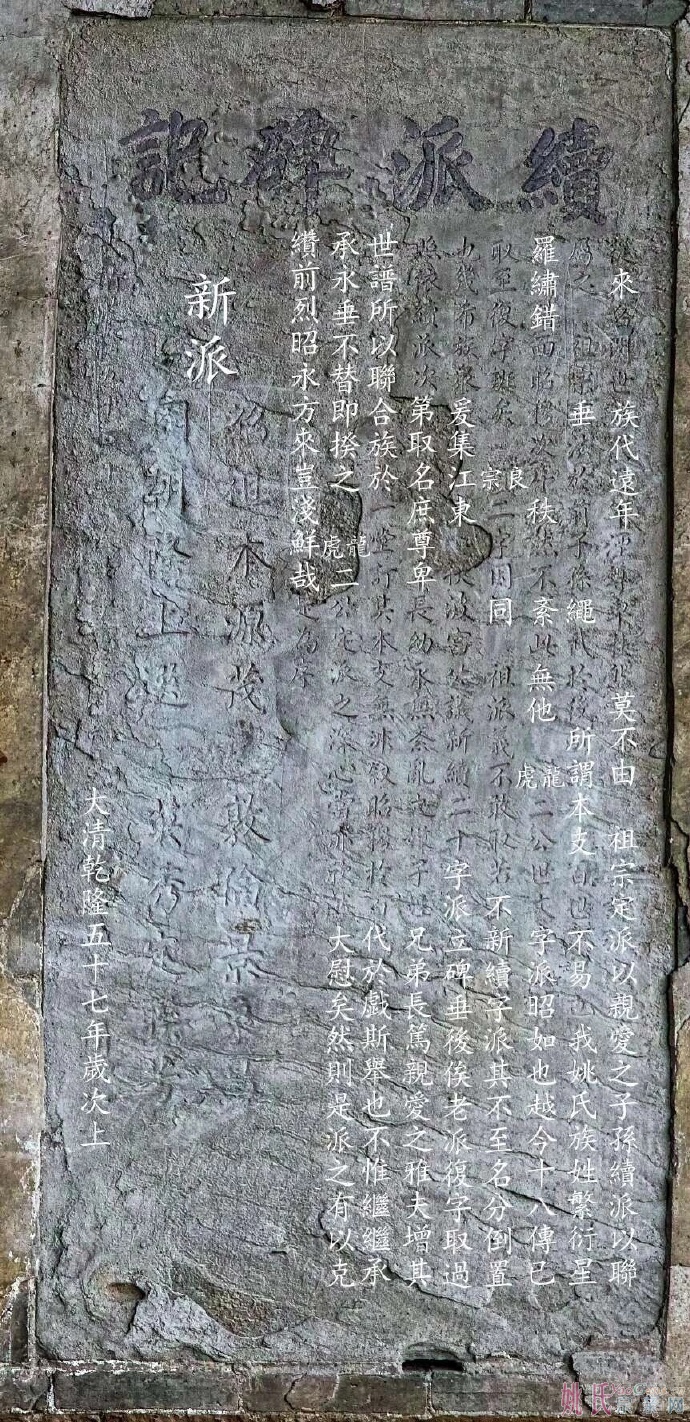 續派碑記
來 世族代遠年 莫不由 祖宗定派以親愛之子孫續派以聯
屬之 祖宗垂法於前子孫繩代於後所謂本支百世不易也我姚氏族姓繁衍星
羅繡錯而昭穆次序秩然不紊此無他 龍虎二公世文字派昭如也越今十八傳已
取至復字班矣 良宗二字因同 祖派義不敢取若不新續字派其不至名分倒置
也幾希族眾爰集江東 議新續二十字派立碑垂後俟老派復字取過
照依續派次第取名庶尊卑長幼永無紊亂之 子姓兄弟長篤親愛之雅夫增其
世譜所以聯合族於一堂訂其本支無非欲昭穆於百代於戲斯舉也不惟繼繼承
承永垂不替即揆之龍虎二公定派之深心當亦 大慰矣然則是派之有以克
纘前烈昭永方來豈淺鮮哉是為序
新派
紹祖本源茂 敦倫景
朝隆上選 英秀定
大清乾隆五十七年歲次上
姚氏